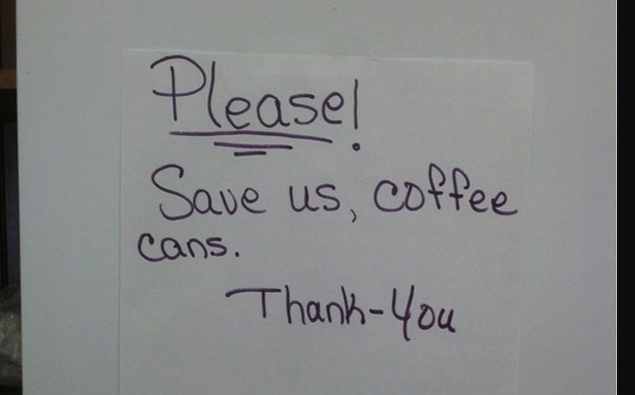 Please!
Save us, coffee
cans.
Thank-You